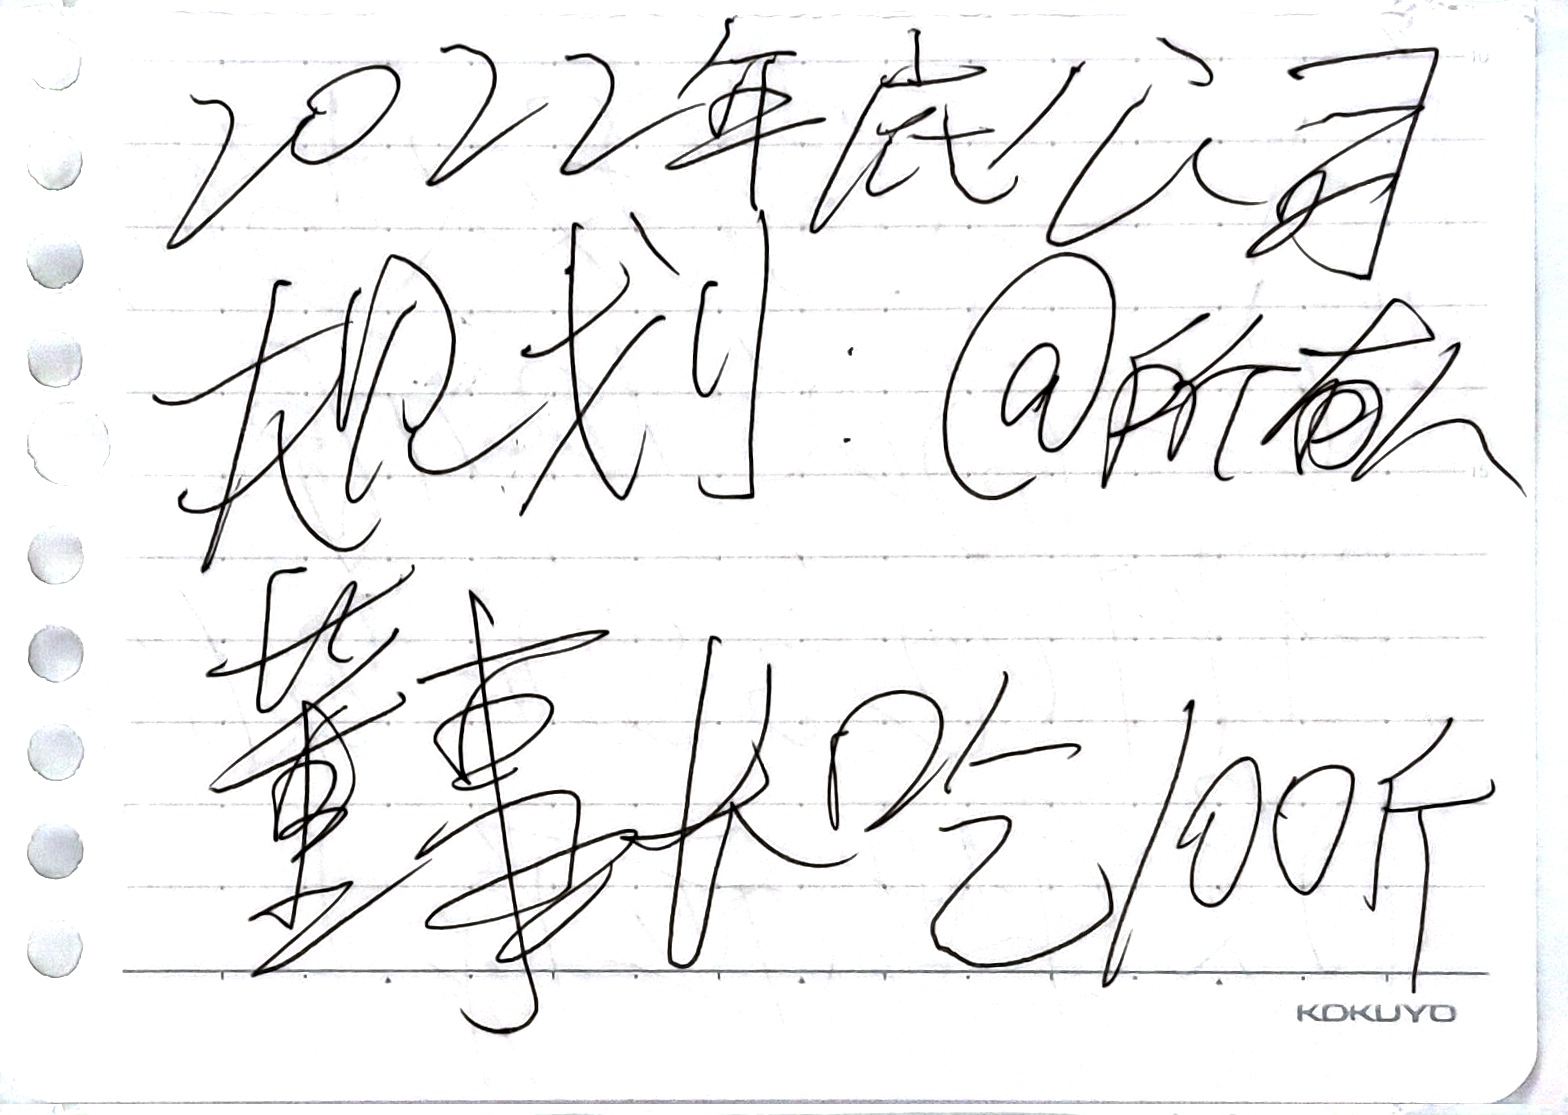 2022年底公司
规划：@所有人
董事长吃100斤
KOKUYO